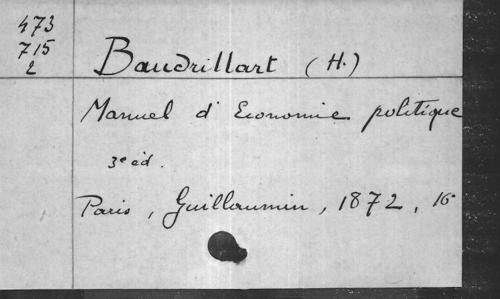 473
715
2
Baudrillart (H.)
Manuel d'Economie politique
3e éd.
Paris, Guillaumin, 1872, 16